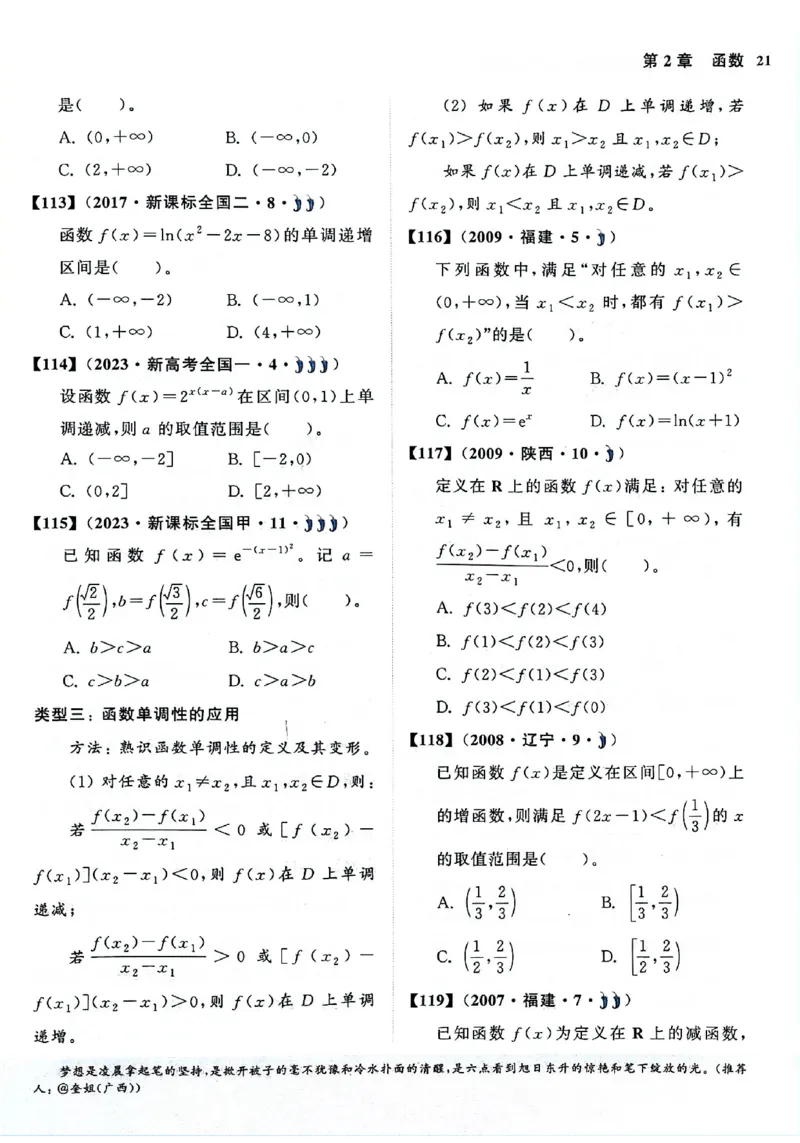 第2章 函数 21
是( )。
A. (0,+∞) B. (-∞,0)
C. (2,+∞) D. (-∞,-2)
【113】(2017·新课标全国二·8·)
函数 f(x)=ln(x²-2x-8)的单调递增
区间是( )。
A. (-∞,-2) B. (-∞,1)
C. (1,+∞) D. (4,+∞)
【114】(2023·新高考全国一·4·)
设函数 f(x)=2^{x(x-a)}在区间(0,1)上单
调递减,则 a 的取值范围是( )。
A. (-∞,-2] B. [-2,0)
C. (0,2] D. [2,+∞)
【115】(2023·新课标全国甲·11·)
已知函数 f(x)=e^{-(x-1)²}。记 a=
f(√2/2),b=f(√3/2),c=f(√6/2),则( )。
A. b>c>a B. b>a>c
C. c>b>a D. c>a>b
类型三:函数单调性的应用
方法:熟识函数单调性的定义及其变形。
(1) 对任意的 x₁≠x₂,且 x₁,x₂∈D,则:
若 (f(x₂)-f(x₁))/(x₂-x₁) < 0 或 [f(x₂)-
f(x₁)](x₂-x₁)<0,则 f(x)在 D 上单调
递减;
若 (f(x₂)-f(x₁))/(x₂-x₁) > 0 或 [f(x₂)-
f(x₁)](x₂-x₁)>0,则 f(x)在 D 上单调
递增。
(2) 如果 f(x)在 D 上单调递增,若
f(x₁)>f(x₂),则 x₁>x₂ 且 x₁,x₂∈D;
如果 f(x)在 D 上单调递减,若 f(x₁)>
f(x₂),则 x₁<x₂ 且 x₁,x₂∈D。
【116】(2009·福建·5·)
下列函数中,满足“对任意的 x₁,x₂∈
(0,+∞),当 x₁<x₂ 时,都有 f(x₁)>
f(x₂)”的是( )。
A. f(x)=1/x B. f(x)=(x-1)²
C. f(x)=eˣ D. f(x)=ln(x+1)
【117】(2009·陕西·10·)
定义在 R 上的函数 f(x)满足:对任意的
x₁≠x₂,且 x₁,x₂∈[0,+∞),有
(f(x₂)-f(x₁))/(x₂-x₁)<0,则( )。
A. f(3)<f(2)<f(4)
B. f(1)<f(2)<f(3)
C. f(2)<f(1)<f(3)
D. f(3)<f(1)<f(0)
【118】(2008·辽宁·9·)
已知函数 f(x)是定义在区间[0,+∞)上
的增函数,则满足 f(2x-1)<f(1/3)的 x
的取值范围是( )。
A. (1/3,2/3) B. [1/3,2/3)
C. (1/2,2/3) D. [1/2,2/3)
【119】(2007·福建·7·)
已知函数 f(x)为定义在 R 上的减函数,
梦想是凌晨拿起笔的坚持,是掀开被子的毫不犹豫和冷水扑面的清醒,是六点看到旭日东升的惊艳和笔下绽放的光。(推荐
人:@奎姐(广西))